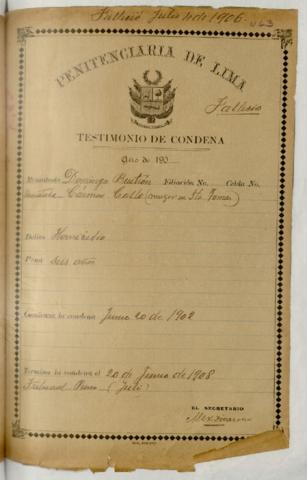 Falleció Julio 4 de 1906.
463
PENITENCIARIA DE LIMA
Falleció
TESTIMONIO DE CONDENA
Año de 190
Rematado Domingo Bustios Filiación No. Celda No.
Cármen Calle (mujer en Sto. Tomas)
Delito Homicidio
Pena seis años
Comienza la condena Junio 20 de 1902
Termina la condena el 20 de Junio de 1908
Tribunal Puno (Juli)
EL SECRETARIO